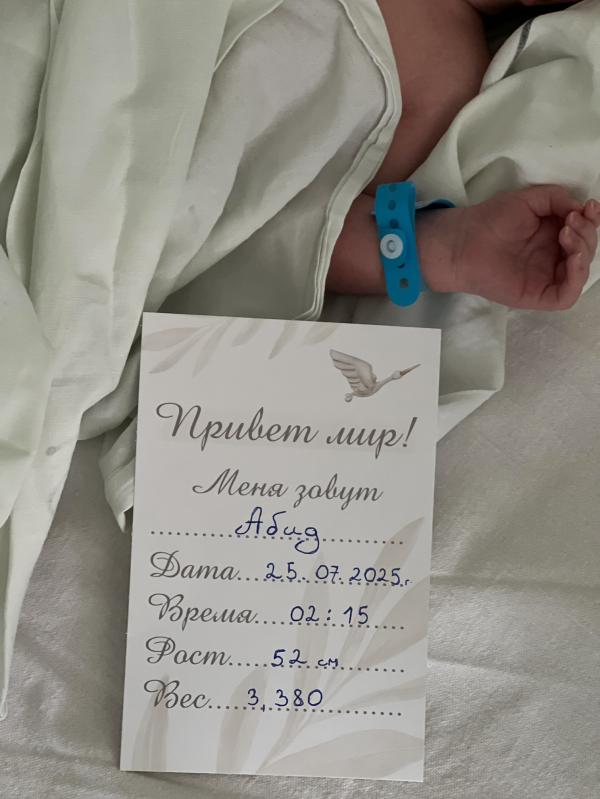 Привет мир!
Меня зовут
Абид
Дата 25.07.2025г.
Время 02:15
Рост 52 см
Вес 3,380